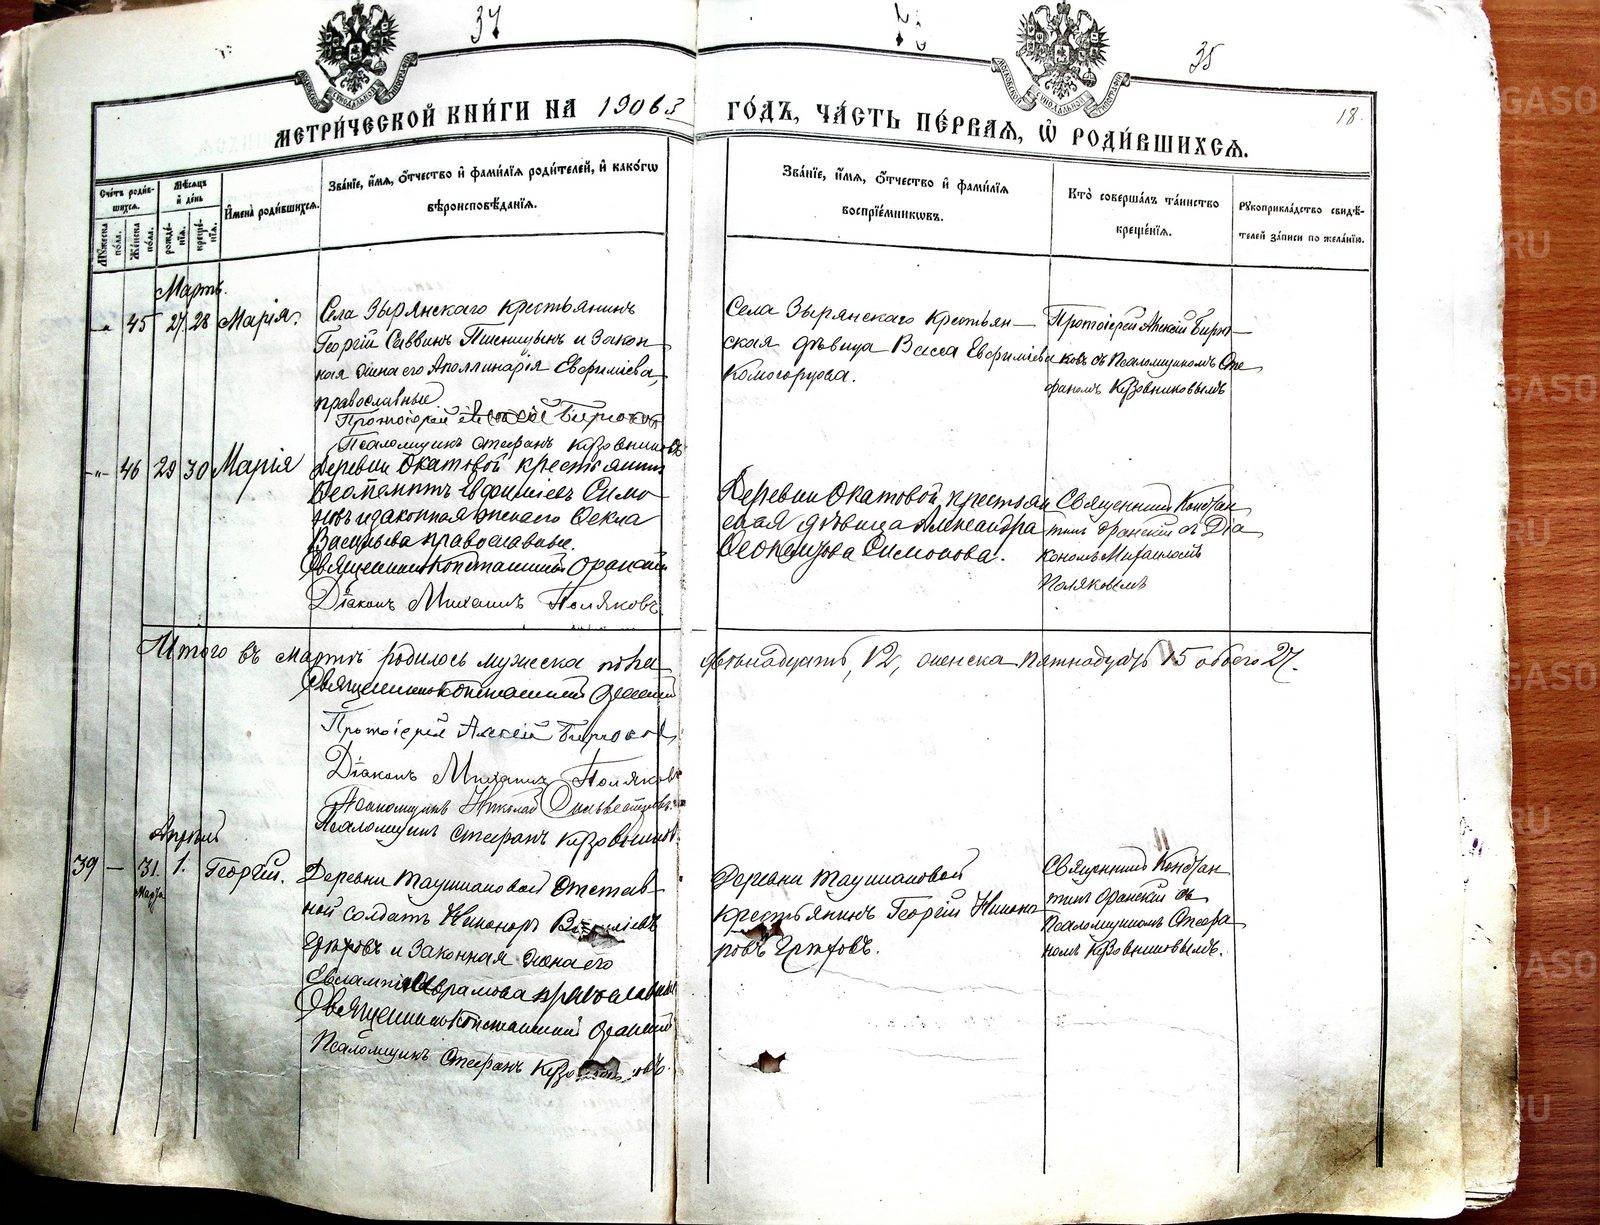 37
35
18.
МЕТРИ́ЧЕСКОЙ КНИ́ГИ НА 1906
ГО́ДЪ, ЧА́СТЬ ПЕ́РВАЯ, Ѡ҆ РОДИ́ВШИХСѦ.
МОСКОВСКОЙ СѴНОДАЛЬНОЙ ТИПОГРАФІИ
МОСКОВСКОЙ СѴНОДАЛЬНОЙ ТИПОГРАФІИ
Сче́тъ роди́в-
шихся.
Мѣ́сяцъ
и҆ де́нь
Муже́ска по́ла.
Же́нска по́ла.
рожде́-
нїя.
креще́-
нїя.
И҆мена̀ роди́вшихся.
Зва́нїе, и҆́мя, ѻ҆́тчество и҆ фами́лїя роди́телей, и҆ како́гѡ
вѣроисповѣ́данїя.
Зва́нїе, и҆́мя, ѻ҆́тчество и҆ фами́лїя
воспрїе́мникѡвъ.
Кто̀ соверша́лъ та́инство
креще́нїя.
Рꙋкоприкла́дство свидѣ́-
телей за́писи по жела́нїю.
Мартъ.
45 27 28 Марія.
Села Зырянскаго крестьянинъ
Георгій Саввинъ Пшеницынъ и закон
ная жена его Аполлинарія Евфиміева,
православные
Протоіерей Алексій Бирюковъ
Псаломщикъ Стефанъ Кузовниковъ
Села Зырянскаго крестьян-
ская дѣвица Васса Евфиміева
Комогорцова.
Протоіерей Алексій Бирю-
ковъ съ Псаломщикомъ Сте
фаномъ Кузовниковымъ
46 29 30 Марія
Деревни Окатовой крестьянинъ
Ѳеопемптъ Евфиміевъ Симо
новъ и законная жена его Ѳекла
Васильева православные.
Священникъ Константинъ Оранскій
Діаконъ Михаилъ Поляковъ
Деревни Окатовой крестьян
ская дѣвица Александра
Ѳеопемптова Симонова.
Священникъ Констан
тинъ Оранскій съ Діа
кономъ Михаиломъ
Поляковымъ
Итого въ мартѣ родилось мужеска пола двѣнадцать, 12, женска пятнадцать 15 обоего 27.
Священникъ Константинъ Оранскій
Протоіерей Алексій Бирюковъ
Діаконъ Михаилъ Поляковъ
Псаломщикъ Николай
Псаломщикъ Стефанъ Кузовниковъ.
Апрѣль
39 — 31. 1. Георгій.
Марта
Деревни Таушкановой отстав-
ной солдатъ Никаноръ
и законная жена его
Евлампія Аврамова православные
Священникъ Константинъ Оранскій
Псаломщикъ Стефанъ Кузовниковъ.
Деревни Таушкановой
крестьянинъ Георгій Никано
ровъ
Священникъ Констан
тинъ Оранскій съ
Псаломщикомъ Стефа
номъ Кузовниковымъ.